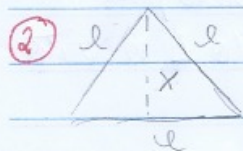 2
l l
x
l